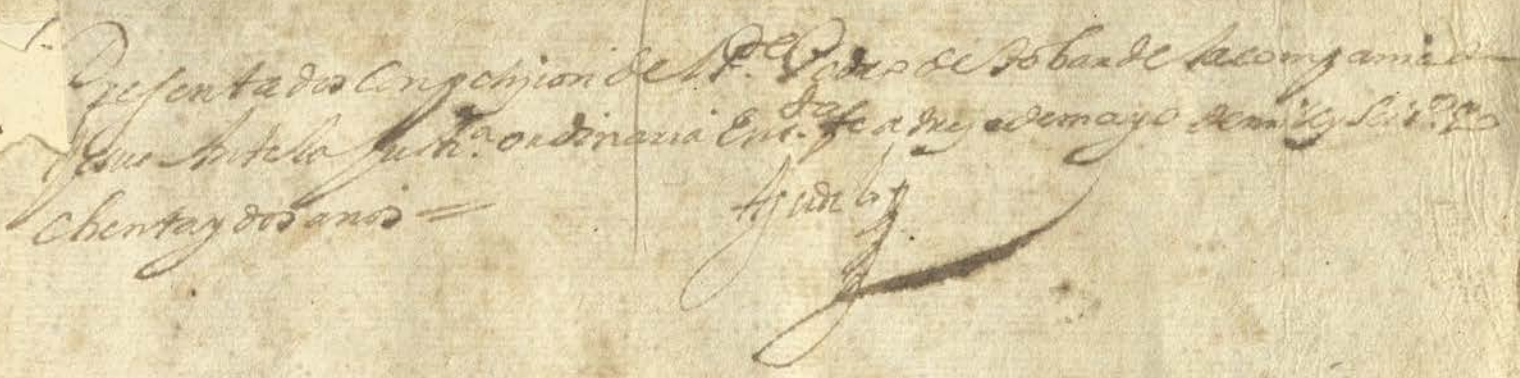 Presentados Con petision del Pe. Pedro de Tobar de la compania de
Jesus Ante la Justiª. ordinaria En s. fe a diez de mayo de mil y seisos. o
chenta y dos anos =